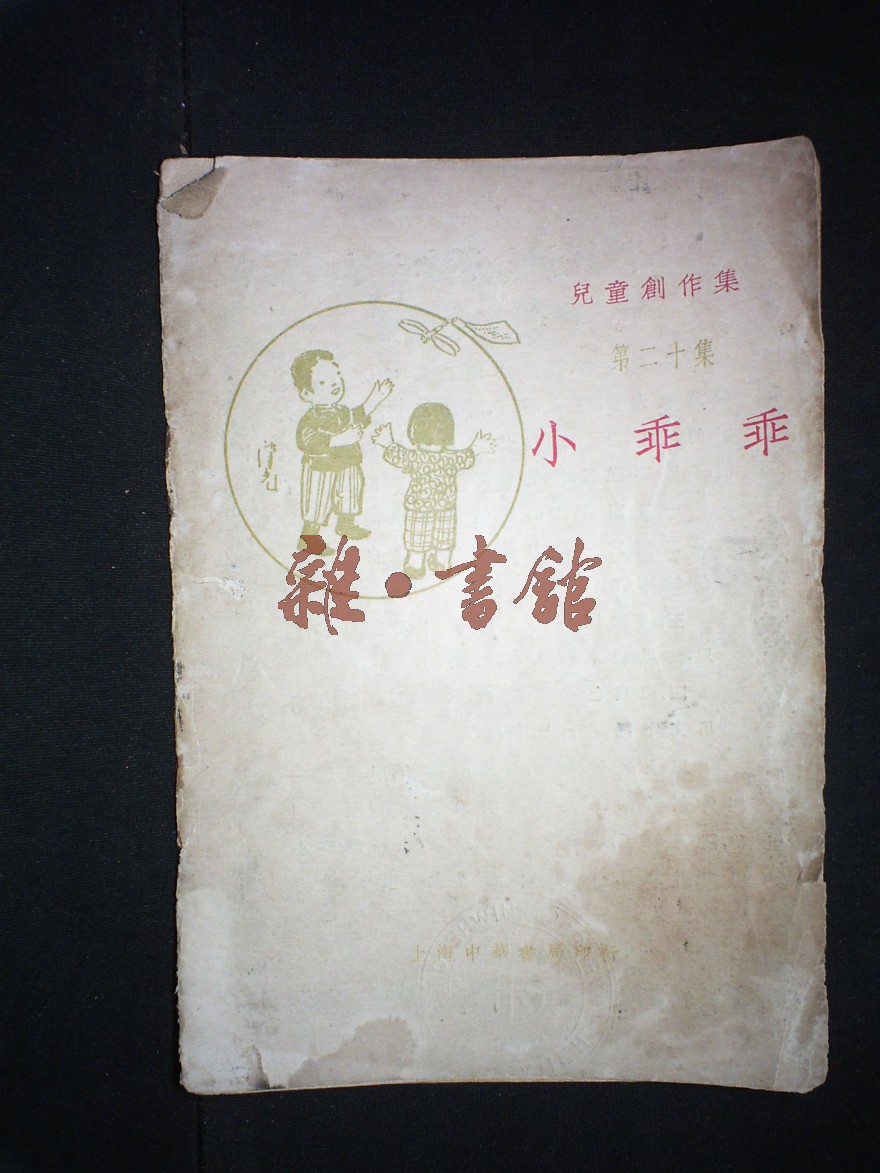 兒童創作集
第二十集
小乖乖
雜·書舘
上海中華書局印行